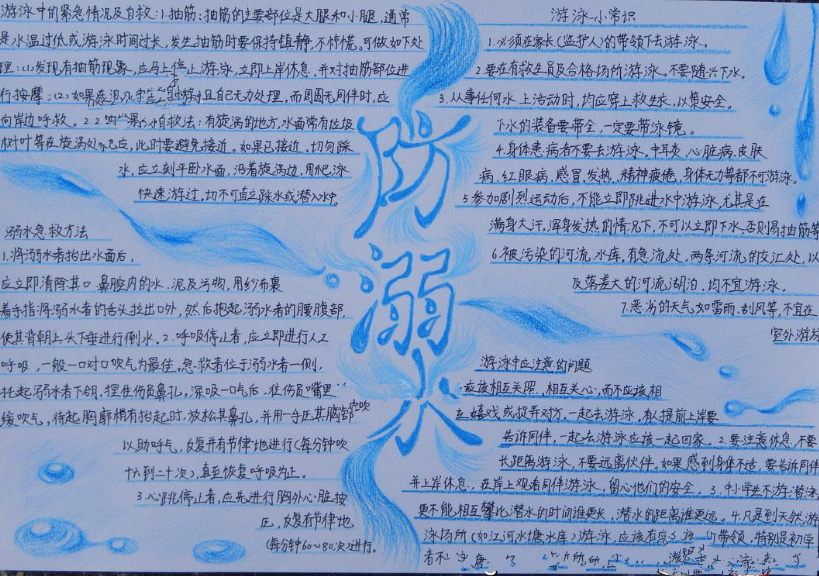 游泳中的紧急情况及自救:1.抽筋:抽筋的主要部位是大腿和小腿,通常
是水温过低或游泳时间过长,发生抽筋时要保持镇静,不惊慌。可做如下处
理:(1)发现有抽筋现象,应马上停止游泳,立即上岸休息,并对抽筋部位进
行按摩;(2)如果在深水中且自己无力处理,而周围无同伴时,应
向岸边呼救。2.自救法:有旋涡的地方,水面常有垃圾
树叶等在旋涡处,此时要避免接近。如果已接近,切勿踩
水,应立刻平卧水面,沿着旋涡边,用爬泳
快速游过,切不可直立踩水或潜入水中。
溺水急救方法
1.将溺水者抬出水面后,
应立即清除其口鼻腔内的水、泥及污物,用纱布裹
着手指将溺水者的舌头拉出口外,然后抱起溺水者的腰腹部,
使其背朝上头下垂进行倒水。2.呼吸停止者,应立即进行人工
呼吸,一般一口对口吹气为最佳。急救者位于溺水者一侧,
托起溺水者下颌,捏住伤员鼻孔,深吸一口气后,往伤员嘴里
缓吹气,待起胸廓稍有抬起时,放松其鼻孔,并用一手压其胸部
以助呼气,反复并有节律地进行(每分钟吹
十六到二十次),直至恢复呼吸为止。
3.心跳停止者,应先进行胸外心脏按
压,反复有节律地
(每分钟60~80次)进行。
防溺水
游泳小常识
1.必须在家长(监护人)的带领下去游泳。
2.要在有救生员及合格场所游泳。不要随兴下水。
3.从事任何水上活动时,均应穿上救生衣,以策安全。
下水的装备要带全,一定要带泳镜。
4.身体患病者不要去游泳。中耳炎,心脏病,皮肤
病,红眼病,感冒,发热,精神疲倦,身体无力等都不可游泳。
5.参加剧烈运动后,不能立即跳进水中游泳,尤其是在
满身大汗,浑身发热的情况下,不可以立即下水,否则易抽筋等
6.被污染的河流,水库,有急流处,两条河流的交汇处,以
及落差大的河流湖泊,均不宜游泳。
7.恶劣的天气如雷雨、刮风等,不宜在
室外游泳
游泳中应注意的问题
应该相互关照,相互关心,而不应该相
互嬉戏或捉弄对方,一起去游泳,有人提前上岸要
告诉同伴,一起去游泳应该一起回家。2.要注意休息,不要
长距离游泳,不要远离伙伴。如果感到身体不适,要告诉同伴
并上岸休息。在岸上观看同伴游泳,留心他们的安全。3.中小学生不游潜泳,
更不能相互攀比潜水的时间谁更长,潜水的距离谁更远。4.凡是到天然游
泳场所(如江河水塘水库)游泳,应该在带领,特别是初学
者不